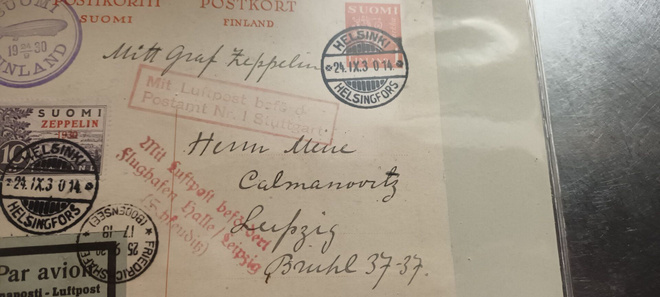 POSTIKORTTI POSTKORT
SUOMI FINLAND
SUOMI
19 24/9 30
FINLAND
Mitt Graf Zeppelin
HELSINKI
24.IX.3 0 14
HELSINGFORS
Mit Luftpost beförd
Postamt Nr. 1 Stuttgart
SUOMI
ZEPPELIN
1930
10
HELSINKI
24.IX.3 0 14
HELSINGFORS
Mit Luftpost befördert
Flughafen Halle/Leipzig
(Schkeuditz)
Herrn Meue
Calmanovitz
Leipzig
Bruhl 37-37.
FRIEDRICHSHAFEN
(BODENSEE)
25 9 30
17-18
Par avion
Luftpost